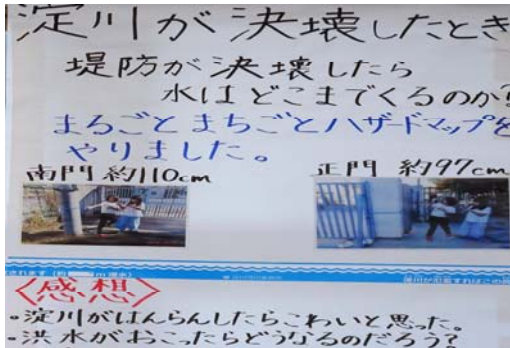 淀川が決壊したとき
堤防が決壊したら
水はどこまでくるのか?
まるごとまちごとハザードマップを
やりました。
南門 約110cm
正門 約97cm
<感想>
・淀川がはんらんしたらこわいと思った。
・洪水がおこったらどうなるのだろう?